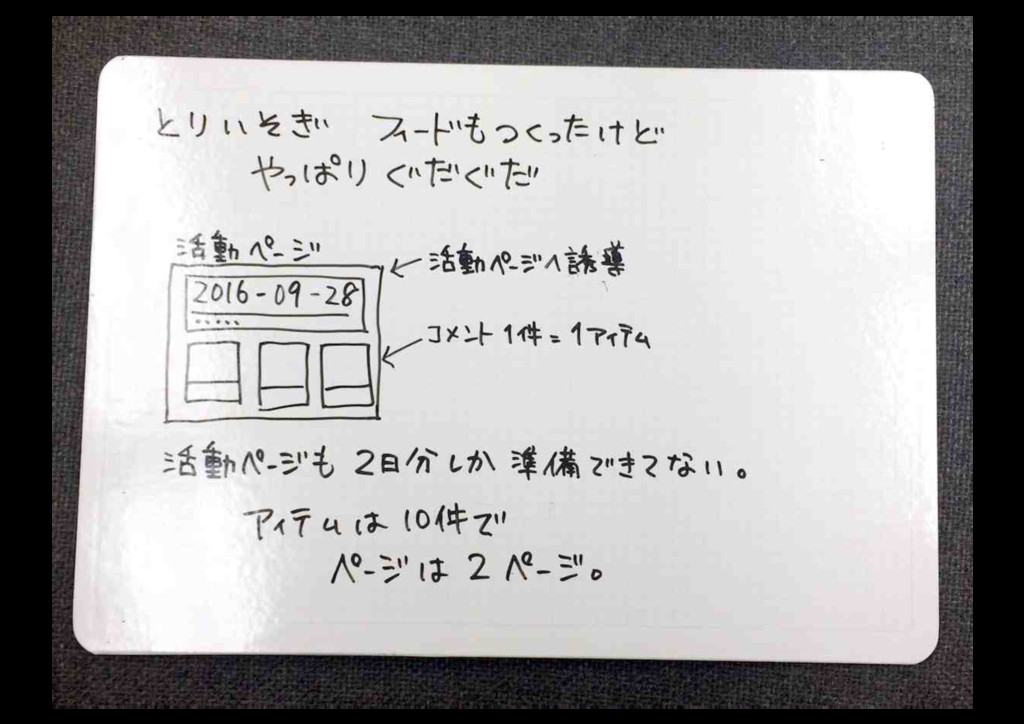 とりいそぎ フィードもつくったけど
やっぱり ぐだぐだ
活動ページ
← 活動ページへ誘導
2016-09-28
.....
← コメント1件=1アイテム
活動ページも 2日分しか 準備できてない。
アイテムは 10件で
ページは 2 ページ。